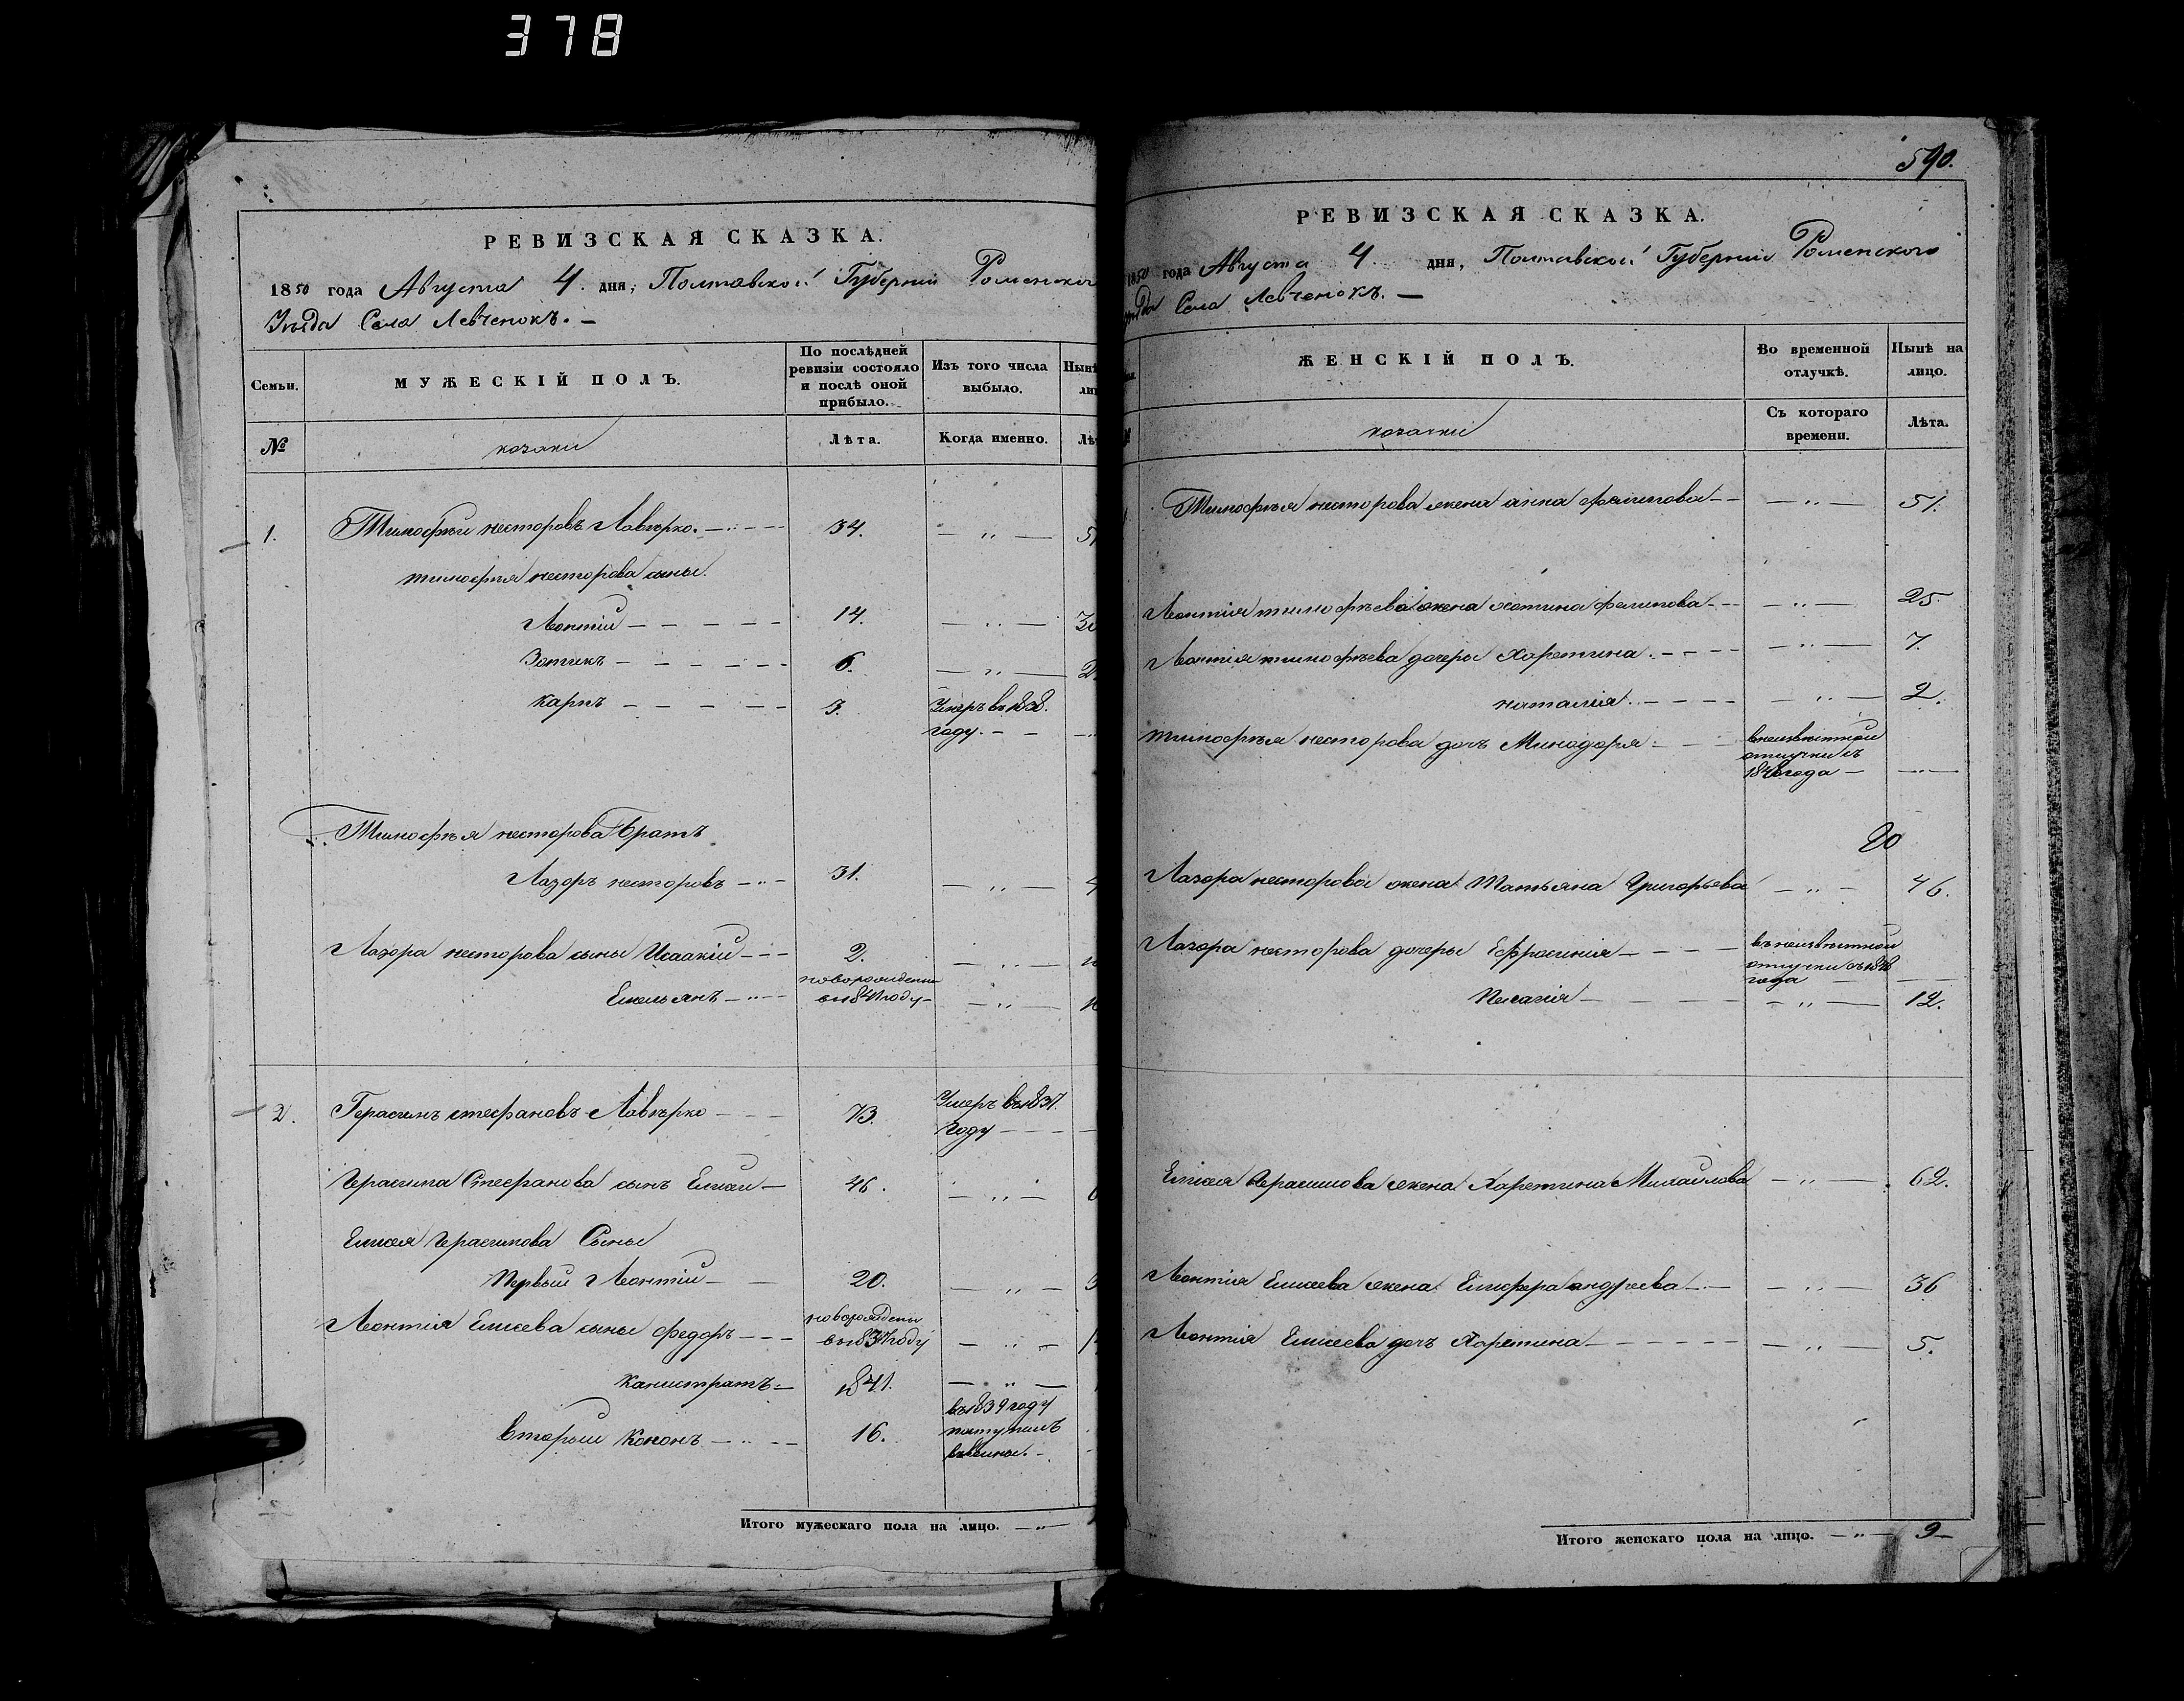 378
РЕВИЗСКАЯ СКАЗКА.
1850 года Августа 4. дня, Полтавской Губерніи Роменского
Уѣзда Села Левченокъ. —
Семьи.
МУЖЕСКІЙ ПОЛЪ.
По послѣдней ревизіи состояло и послѣ оной прибыло.
Изъ того числа выбыло.
№
козаки
Лѣта.
Когда именно.
1. Тимофѣй Несторовъ Лавѣрко. 34. — „ —
Тимофѣя Несторова сыны.
Леонтій 14. — „ —
Зотикъ 6. — „ —
Карпъ 3. Умеръ въ 1838. году.
Тимофѣя Несторова братъ
Лазоръ Несторовъ 31. — „ —
Лазора Несторова сыны Исаакій 2. — „ —
новорожденъ
Емельянъ въ 1841 году — „ —
2. Герасимъ Стефановъ Лавѣрко 73. Умеръ въ 1837. году
Герасима Стефанова сынъ Елисей 46. — „ —
Елисея Герасимова Сыны
Первый Леонтій 20. — „ —
Леонтія Елисеева сыны Федоръ новорожденъ въ 1837 году — „ —
Калистратъ 1841. — „ —
Вторый Кононъ 16. въ 1839 году
Итого мужескаго пола на лицо. — „ —
590.
РЕВИЗСКАЯ СКАЗКА.
1850 года Августа 4. дня, Полтавской Губерніи Роменского
Уѣзда Села Левченокъ. —
ЖЕНСКІЙ ПОЛЪ.
Во временной отлучкѣ.
Нынѣ на лицо.
козачки
Съ котораго времени.
Лѣта.
Тимофѣя Несторова жена Анна — „ — 51.
Леонтія Тимофѣева жена — „ — 25.
Леонтія Тимофѣева дочеры Харетина — „ — 7.
Наталія — „ — 2.
Тимофѣя Несторова дочъ Минодора в неизвѣстной
отлучки съ
1848 года — „ —
Лазора Несторова жена Татьяна Григорьева — „ — 46.
Лазора Несторова дочеры Ефросинія въ неизвѣстной
отлучки съ 1848
года
Пелагія — „ — 12.
Елисея Герасимова жена Харетина Михайлова — „ — 62.
Леонтія Елисеева жена Андреева — „ — 36
Леонтія Елисеева дочъ Харетина — „ — 5.
Итого женскаго пола на лицо. — „ — 9